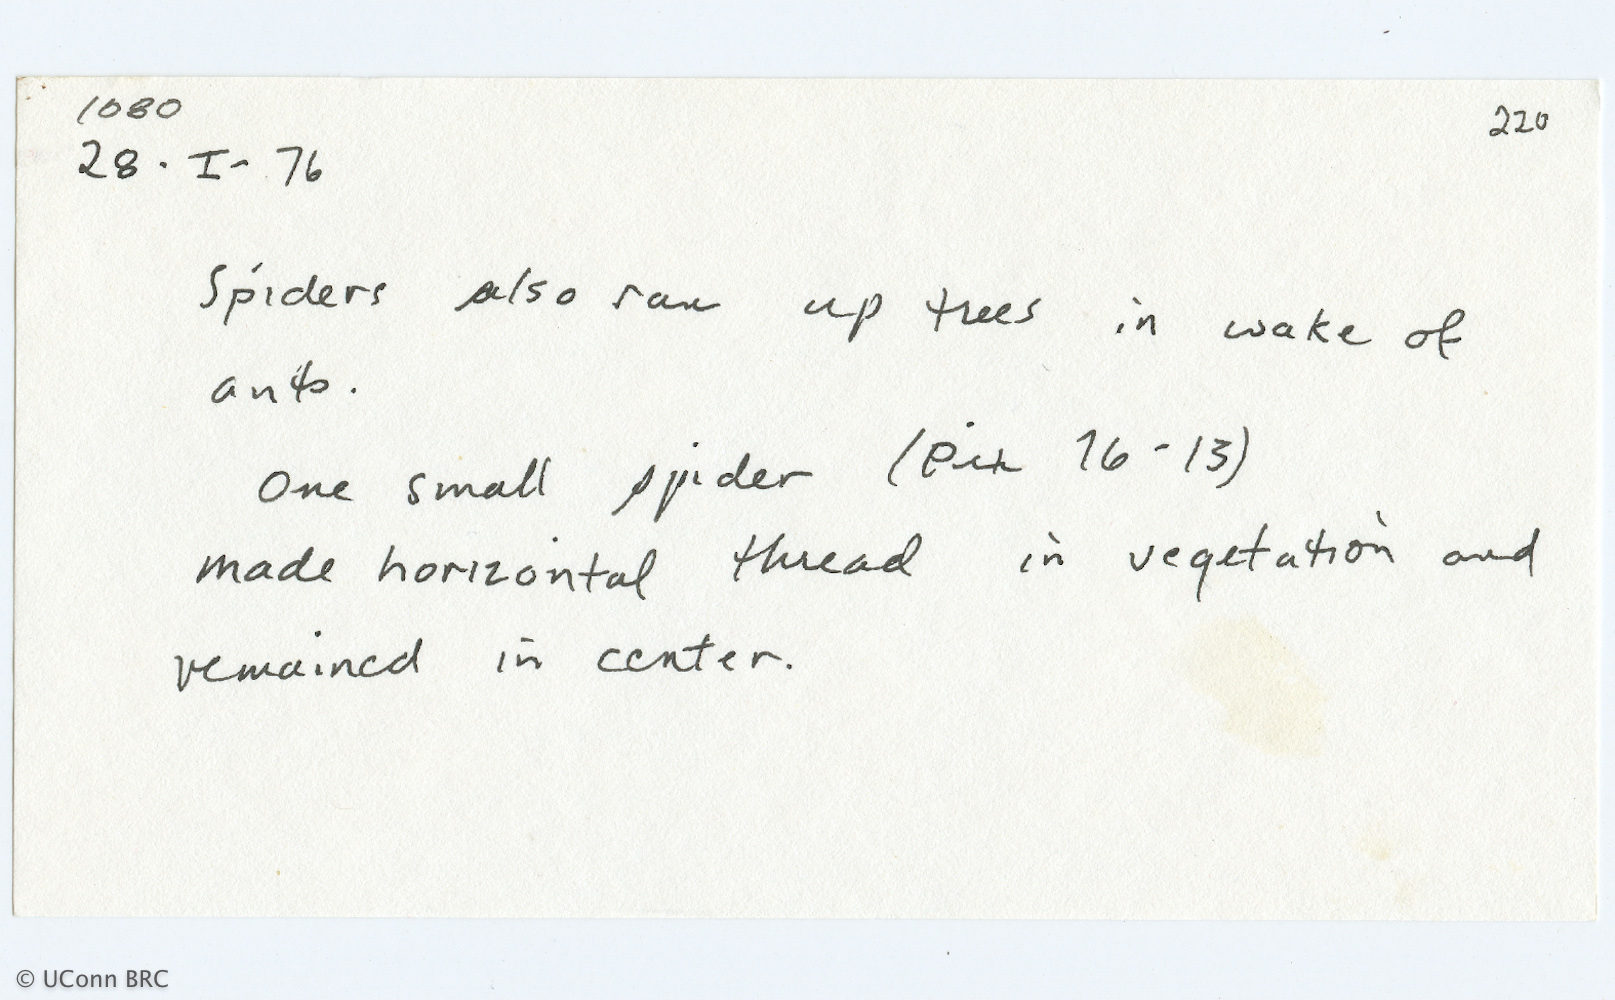 1080
220
28 · I - 76
Spiders also ran up trees in wake of
ants.
One small spider (Pix 76-13)
made horizontal thread in vegetation and
remained in center.
© UConn BRC